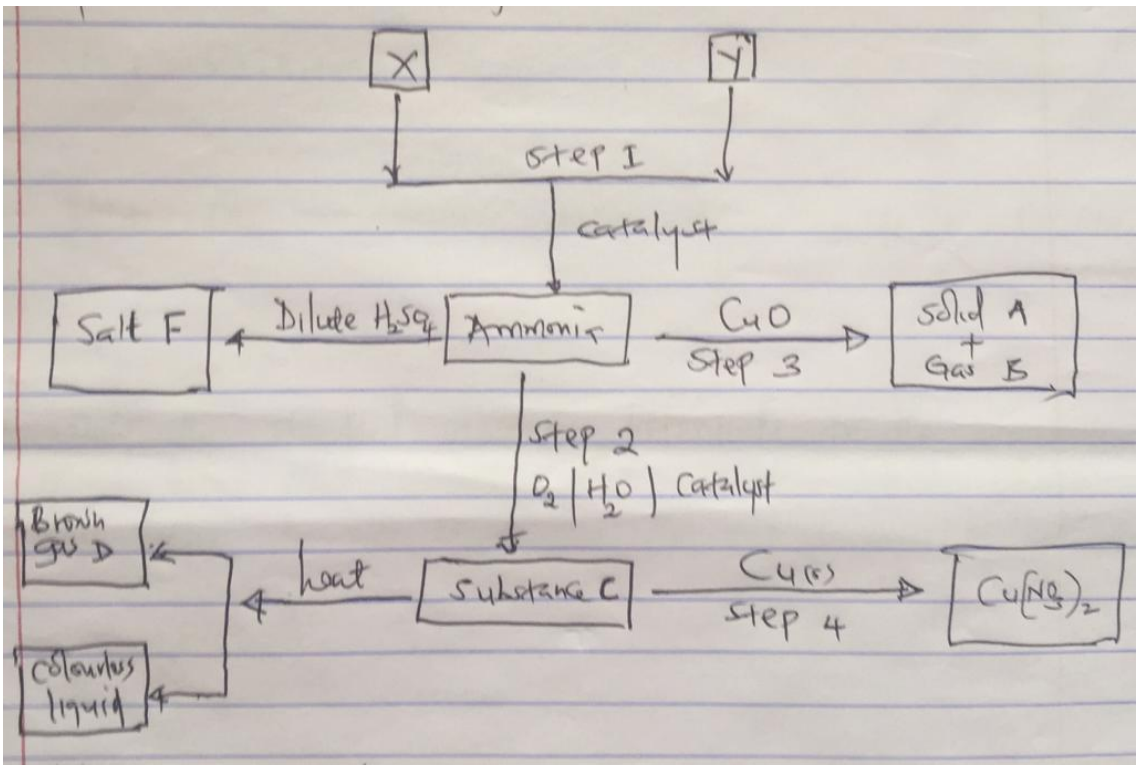 X
Y
Step I
Catalyst
Salt F
Dilute H₂SO₄
Ammonia
CuO
Step 3
Solid A
+
Gas B
Step 2
O₂ | H₂O | Catalyst
Brown
gas D
heat
Substance C
Cu(s)
Step 4
Cu(NO₃)₂
Colourless
liquid